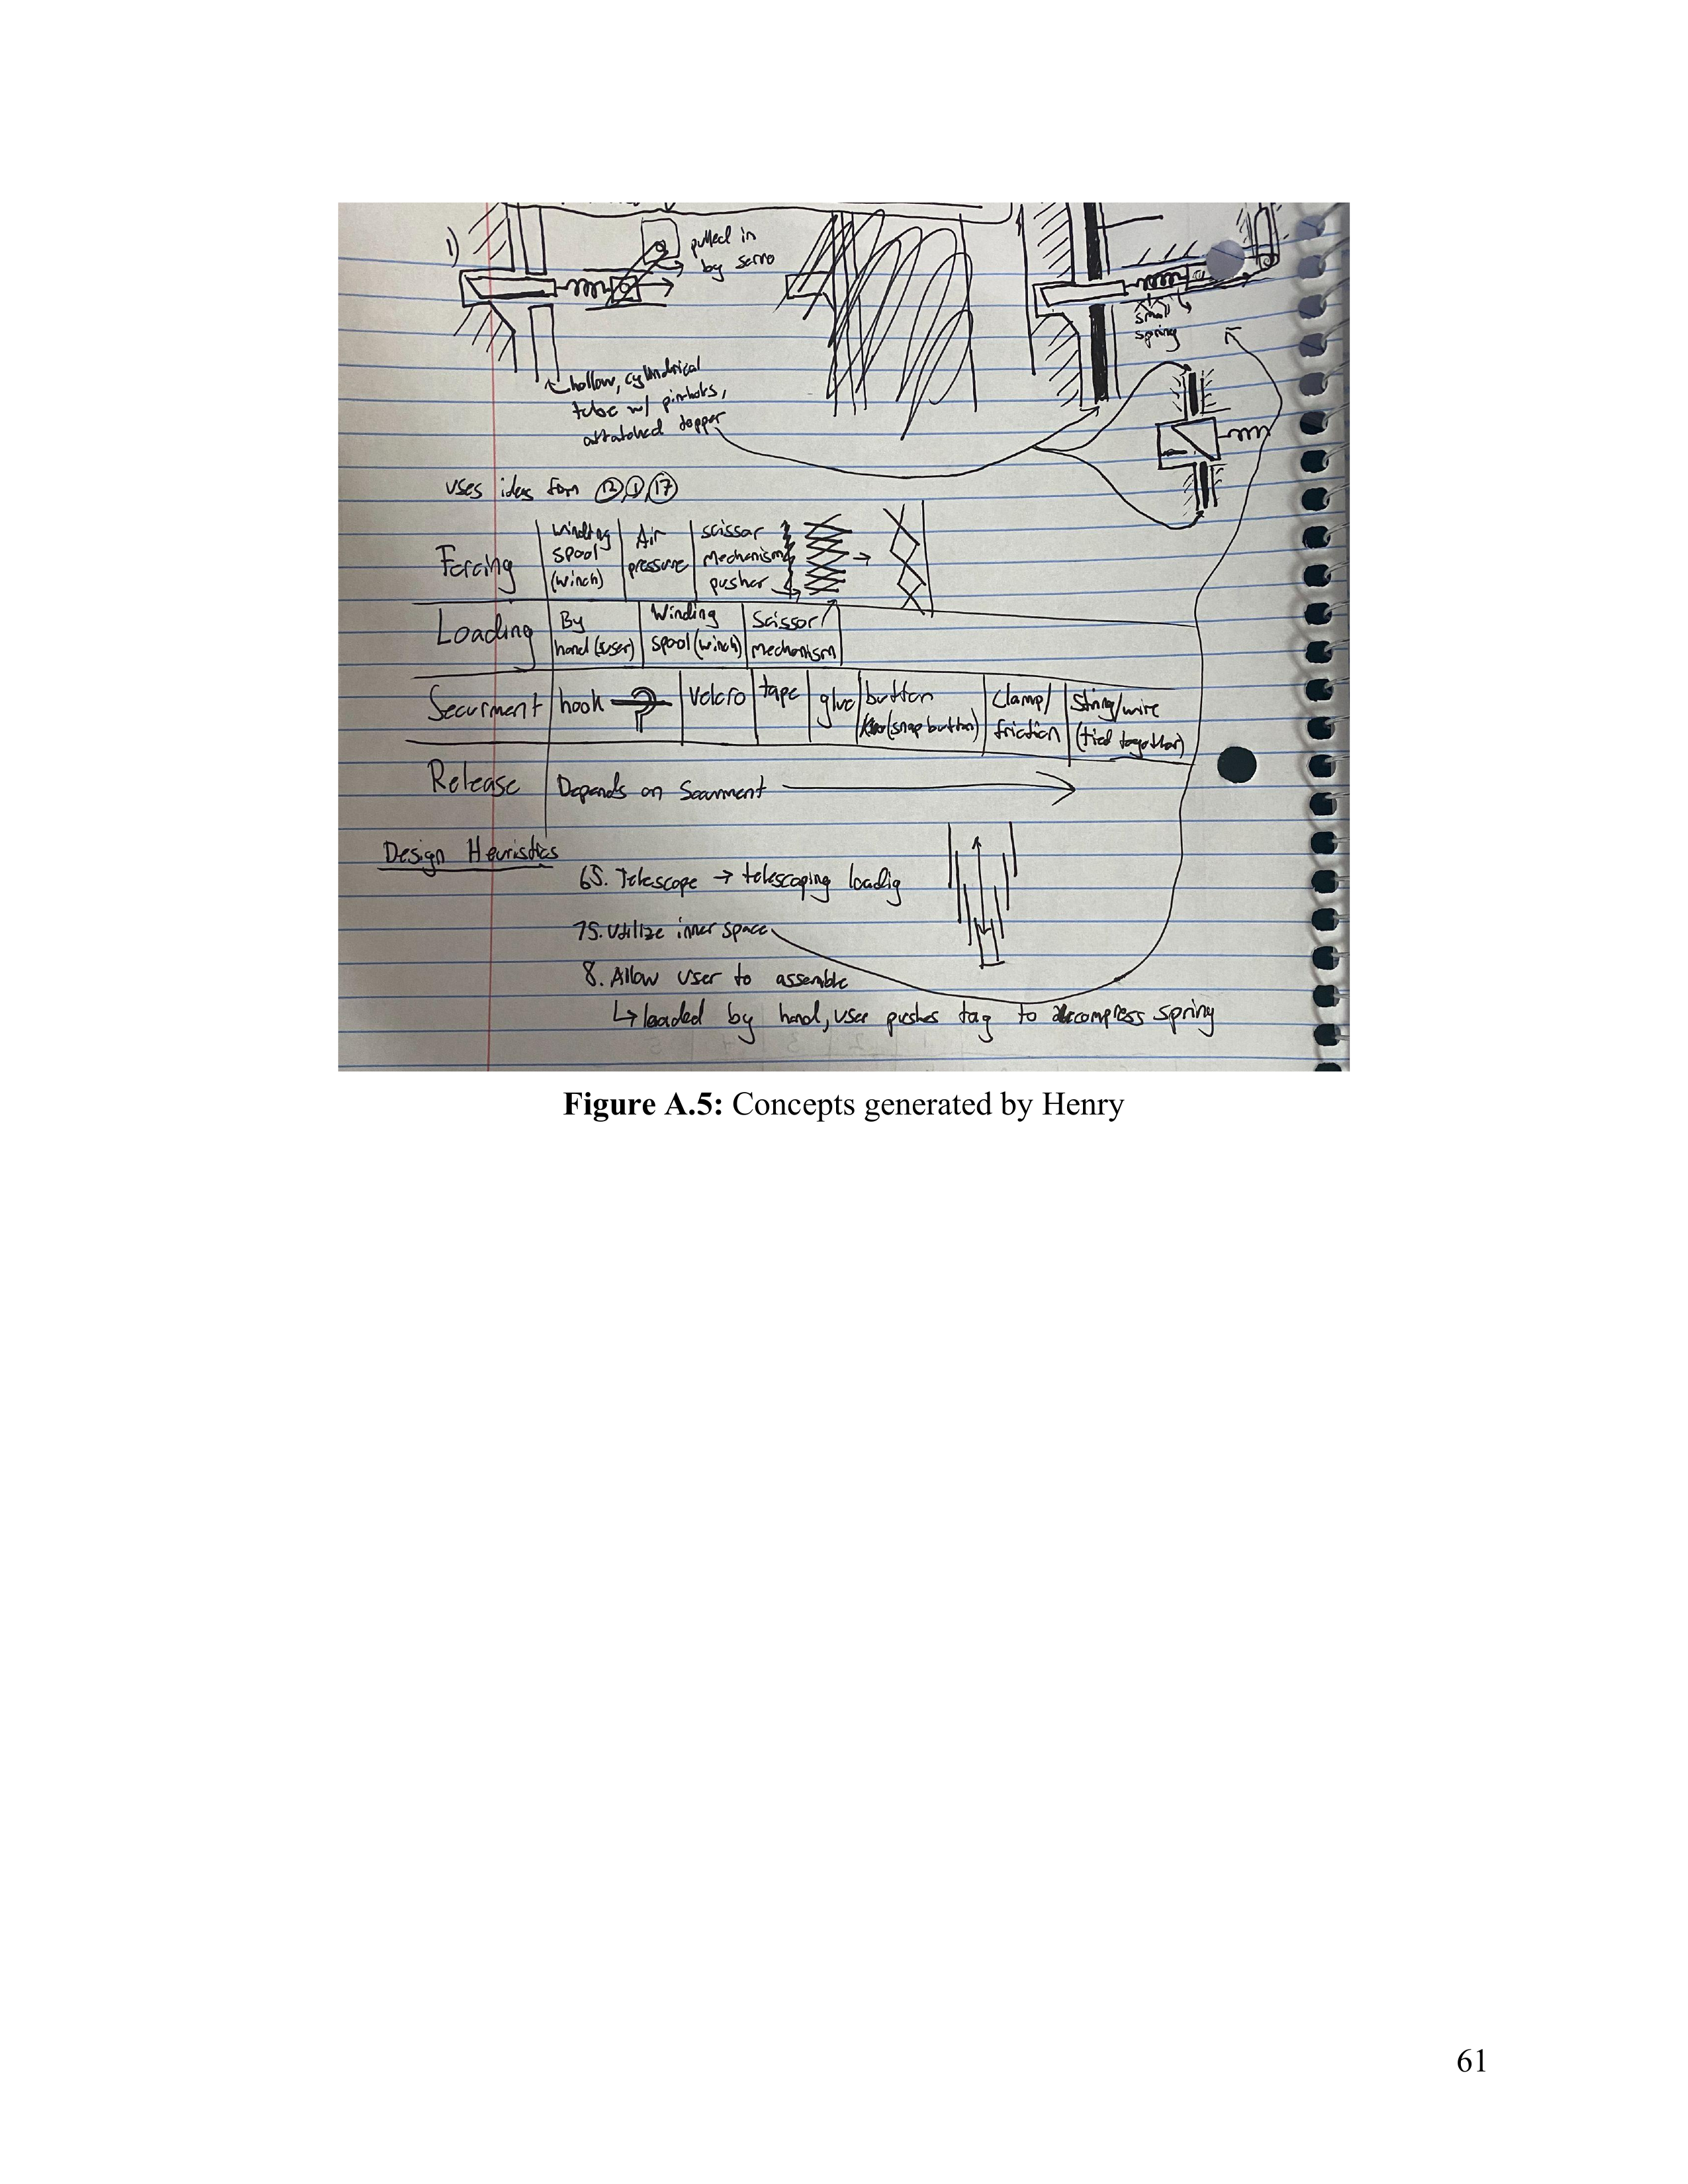 1)
pulled in
by servo
small
spring
hollow, cylindrical
tube w/ pinholes,
attatched topper
uses ideas from 12, 1, 17
Forcing
winding
spool
(winch)
Air
pressure
scissor
mechanism
pusher
Loading
By
hand (user)
Winding
spool (winch)
Scissor
mechanism
Securment
hook
Velcro
tape
glue
button
(snap button)
Clamp/
friction
String/wire
(tied together)
Release
Depends on Securment
Design Heuristics
65. Telescope → telescoping loadig
75. Utilize inner space
8. Allow user to assemble
↳ loaded by hand, user pushes tag to decompress spring
Figure A.5: Concepts generated by Henry
61